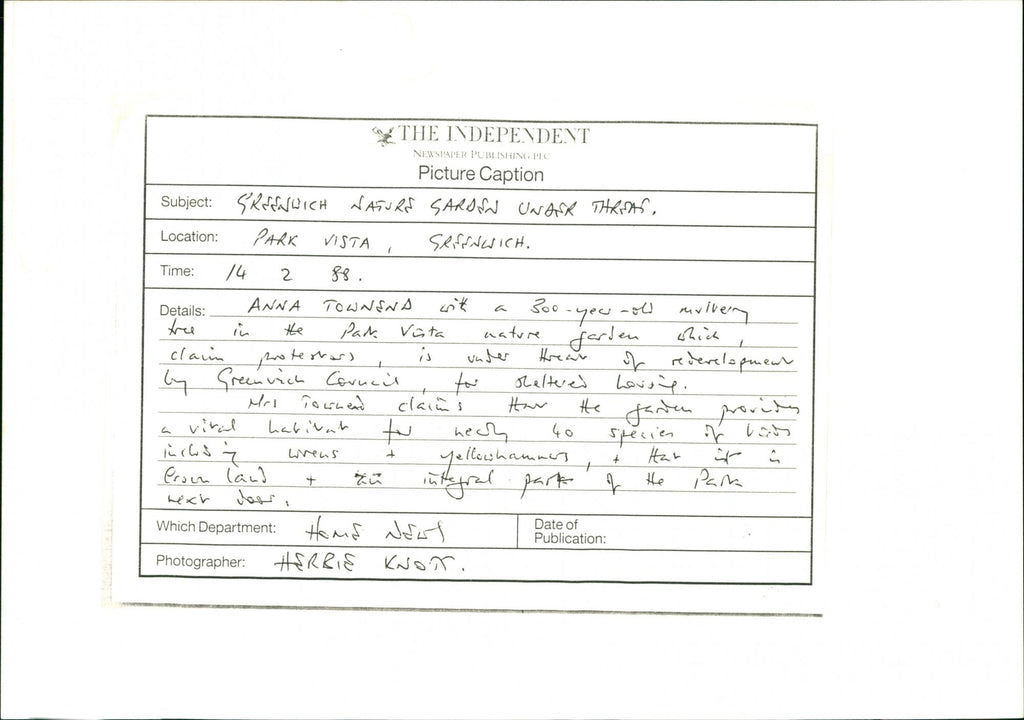 THE INDEPENDENT
NEWSPAPER PUBLISHING PLC
Picture Caption
Subject: GREENWICH NATURE GARDEN UNDER THREAT.
Location: PARK VISTA, GREENWICH.
Time: 14 2 88.
Details: ANNA TOWNEND with a 300-year-old mulberry
tree in the Park Vista nature garden which,
claim protestors, is under threat of redevelopment
by Greenwich Council, for sheltered housing.
Mrs Townend claims that the garden provides
a vital habitat for nearly 40 species of birds
including wrens + yellowhammers, + that it is
Crown land + an integral part of the Park
next door.
Which Department: HOME NEWS
Date of
Publication:
Photographer: HERBIE KNOTT.